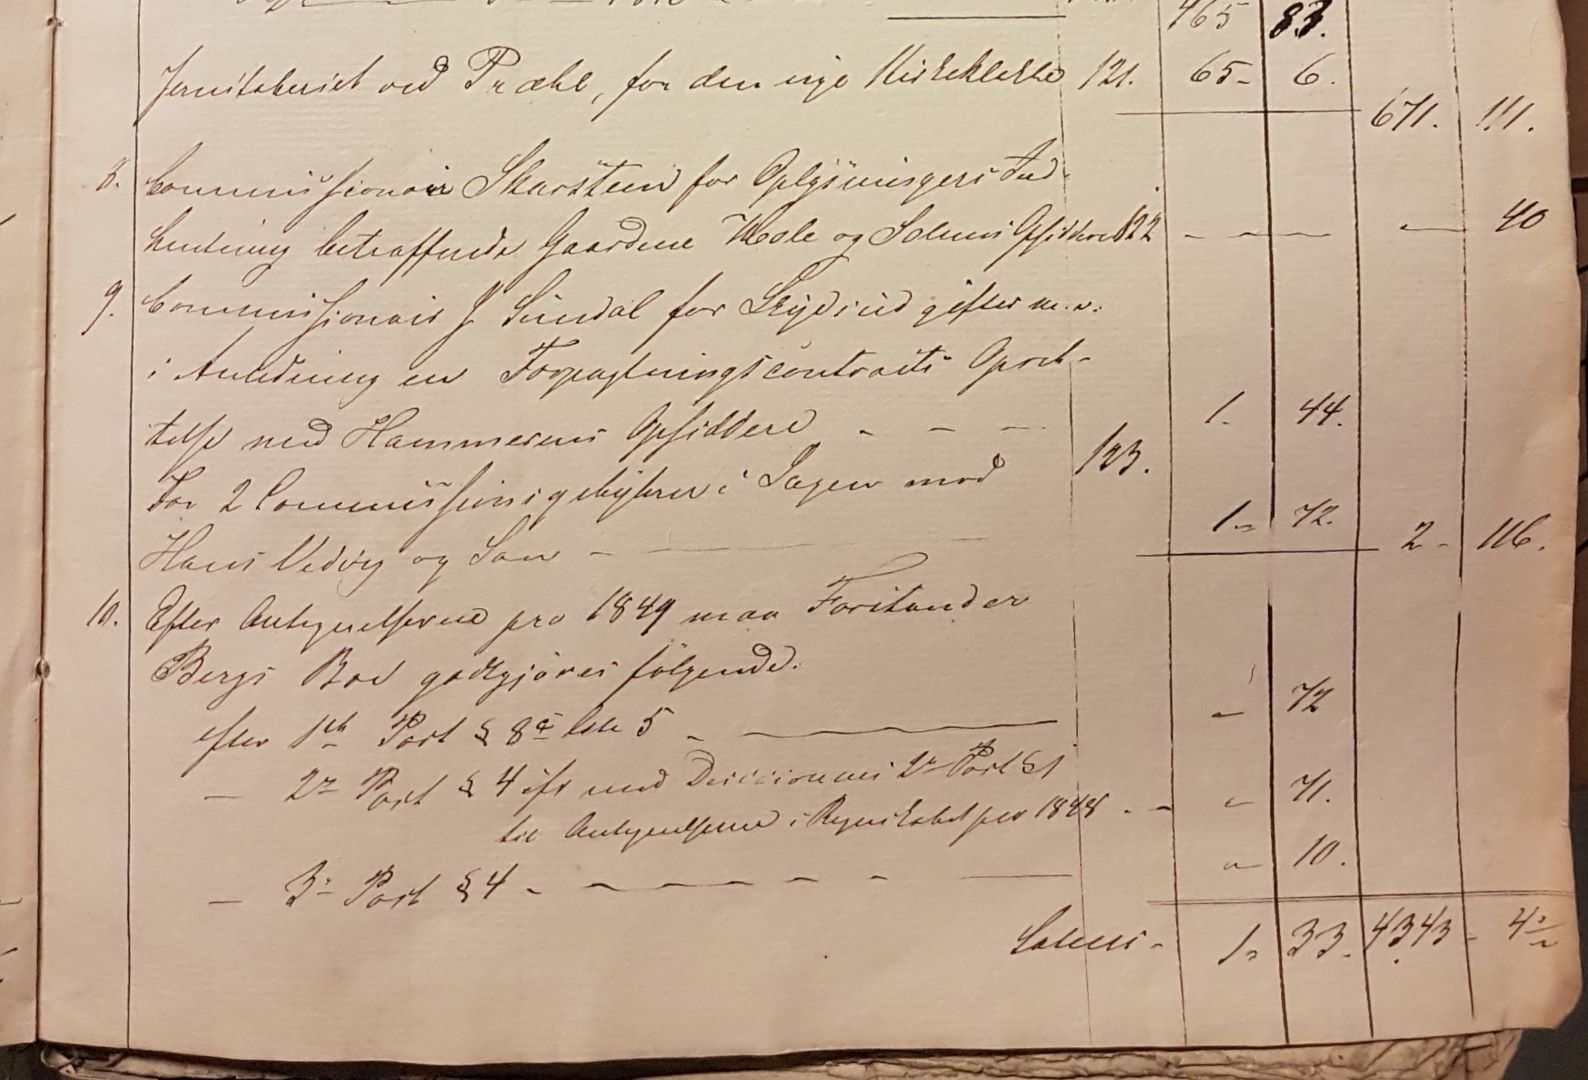 465 83.
Jernstøberiet ved Præhl, for den nye Kirkeklokke 121. 65 - 6.
671. 111.
8. Commissionair Skarstein for Oplysningers Ind-
hentning betræffende Gaardene Hole og Solems Opsiddere 122 - - - - 40
9. Commissionair J. Sundal for Skydsudgifter m. v.
i Anledning en Forpagtningscontracts Opret-
telse med Hammerens Opsiddere - - - 1. 44.
123.
For 2 Commissionsgebyhrer i Sagen mod
Hans Vedvig og Søn - 1 - 72. 2 - 116.
10. Efter Antegnelserne pro 1849 maa Forstander
Bergs Boe godtgjøres følgende.
efter 1ste Post § 8de 5 - " 72
— 2den Post § 4 cfr med Decisionens 2den Post § 1
til Antegnelserne i Regnskabet pro 1848 - - " 71.
— 3die Post § 4 - - - - - - " 10.
Lateris - 1 - 33. 4343 - 4½